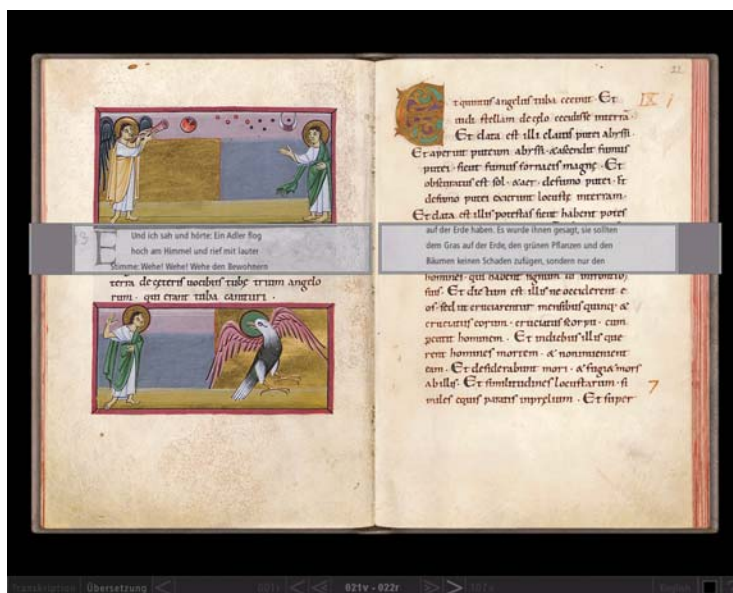 13
Und ich sah und hörte: Ein Adler flog
hoch am Himmel und rief mit lauter
Stimme: Wehe! Wehe! Wehe den Bewohnern
terra de ceteris uocibus tubę trium angelo
rum · qui erant tuba canituri ·
21
IX
Et quintus angelus tuba cecinit · Et
uidi stellam de cęlo cecidisse in terra
Et data est illi clauis putei abyssi ·
Et aperuit puteum abyssi · & ascendit fumus
putei · sicut fumus fornacis magnę · Et
obscuratus est sol · & aer · de fumo putei · Et
de fumo putei exierunt locustę in terram ·
Et data est illis potestas sicut habent potes
auf der Erde haben. Es wurde ihnen gesagt, sie sollten
dem Gras auf der Erde, den grünen Pflanzen und den
Bäumen keinen Schaden zufügen, sondern nur den
homines · qui habent signum in frontib)
suis · Et dictum est illis ne occiderent e
os · sed ut cruciarentur mensibus quinq; &
cruciatus eorum · cruciatus scorpii · cum
percutit hominem · Et in diebus illis que
rent homines mortem · & non inuenient
eam · Et desiderabunt mori · & fugi& mors
ab illis · Et similitudines locustarum · si
miles equis paratis in prelium · Et super
7
Transkription Übersetzung 001r 021v - 022r 107v English